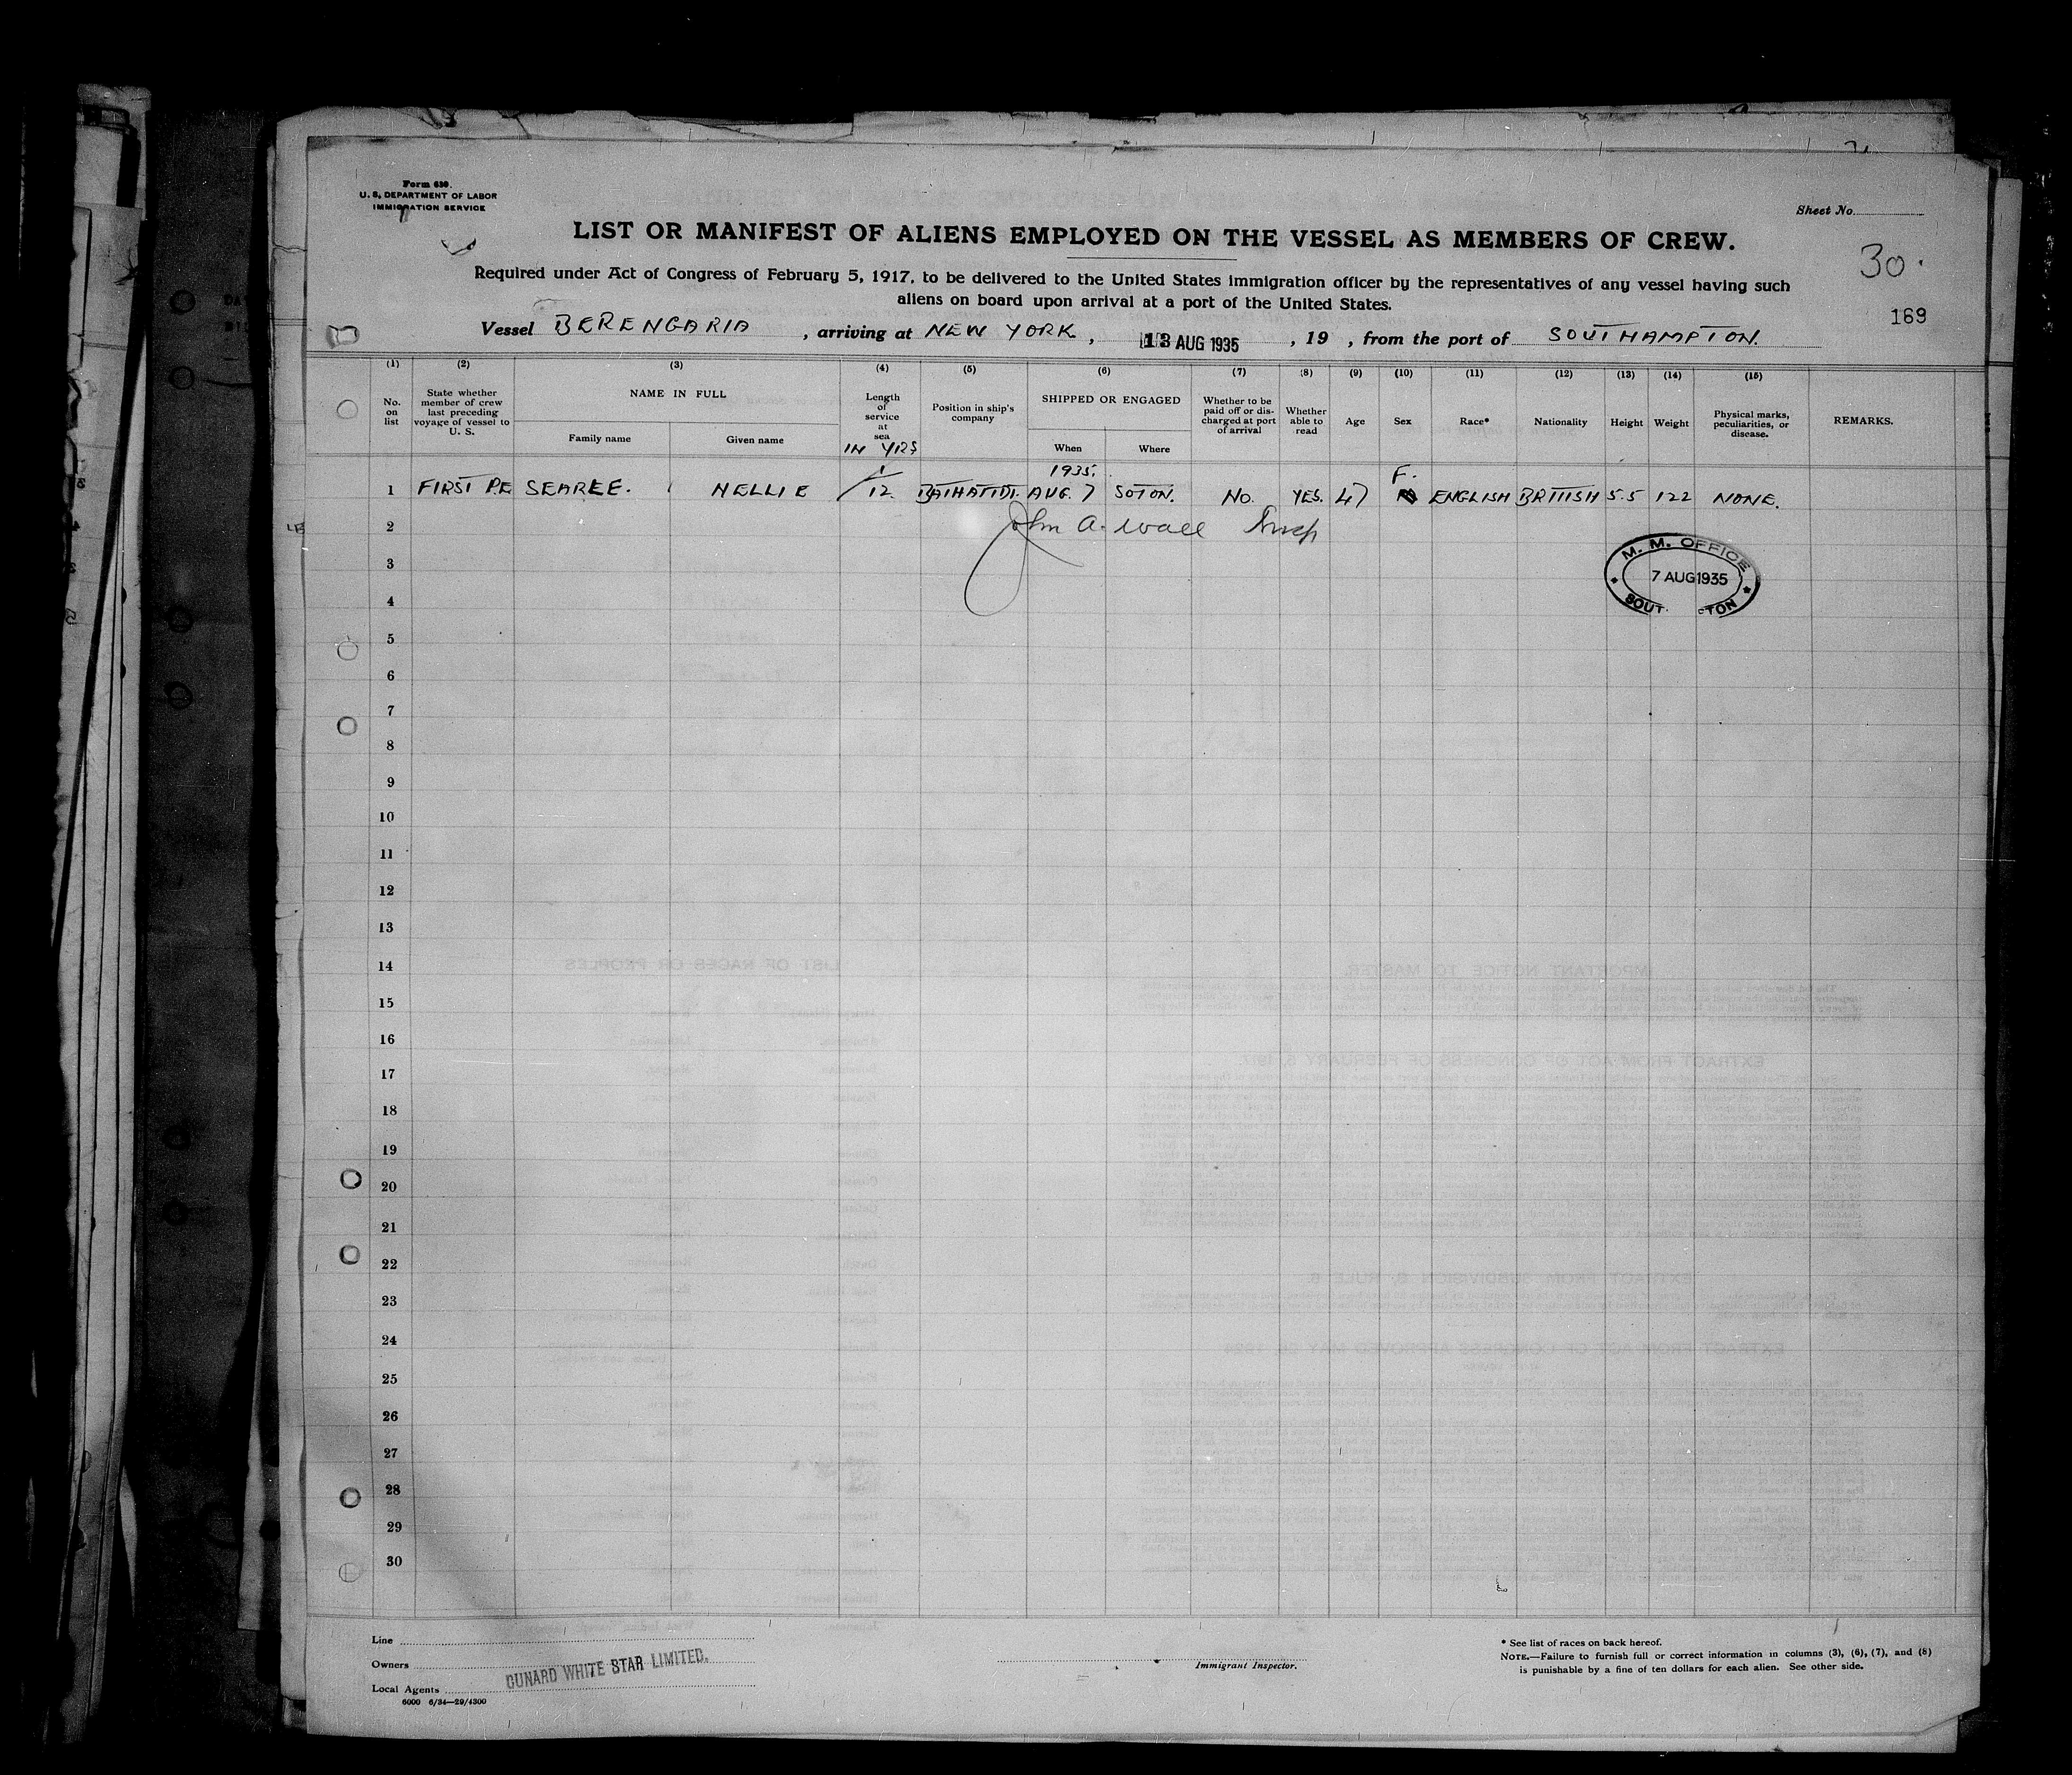 Form 630.
U. S. DEPARTMENT OF LABOR
IMMIGRATION SERVICE
Sheet No.
LIST OR MANIFEST OF ALIENS EMPLOYED ON THE VESSEL AS MEMBERS OF CREW.
30.
Required under Act of Congress of February 5, 1917, to be delivered to the United States immigration officer by the representatives of any vessel having such
aliens on board upon arrival at a port of the United States.
169
Vessel BERENGARIA, arriving at NEW YORK, 13 AUG 1935, 19 , from the port of SOUTHAMPTON.
(1) (2) (3) (4) (5) (6) (7) (8) (9) (10) (11) (12) (13) (14) (15)
No. on list
State whether member of crew last preceding voyage of vessel to U. S.
NAME IN FULL
Family name
Given name
Length of service at sea
IN YRS
Position in ship's company
SHIPPED OR ENGAGED
When
Where
Whether to be paid off or discharged at port of arrival
Whether able to read
Age
Sex
Race*
Nationality
Height
Weight
Physical marks, peculiarities, or disease.
REMARKS.
1935. F.
1 FIRST P.E SEARLE. NELLIE 1/12 BATHATTDT. AUG. 7 SOTON. No. YES. 47 ENGLISH BRITISH 5.5 122 NONE.
2 John A. Wall Insp
3
4
M. M. OFFICE
7 AUG 1935
SOUT CTON
5
6
7
8
9
10
11
12
13
14
15
16
17
18
19
20
21
22
23
24
25
26
27
28
29
30
Line
Owners
CUNARD WHITE STAR LIMITED.
Local Agents
6000 6/34—29/4300
Immigrant Inspector.
* See list of races on back hereof.
NOTE.—Failure to furnish full or correct information in columns (3), (6), (7), and (8)
is punishable by a fine of ten dollars for each alien. See other side.